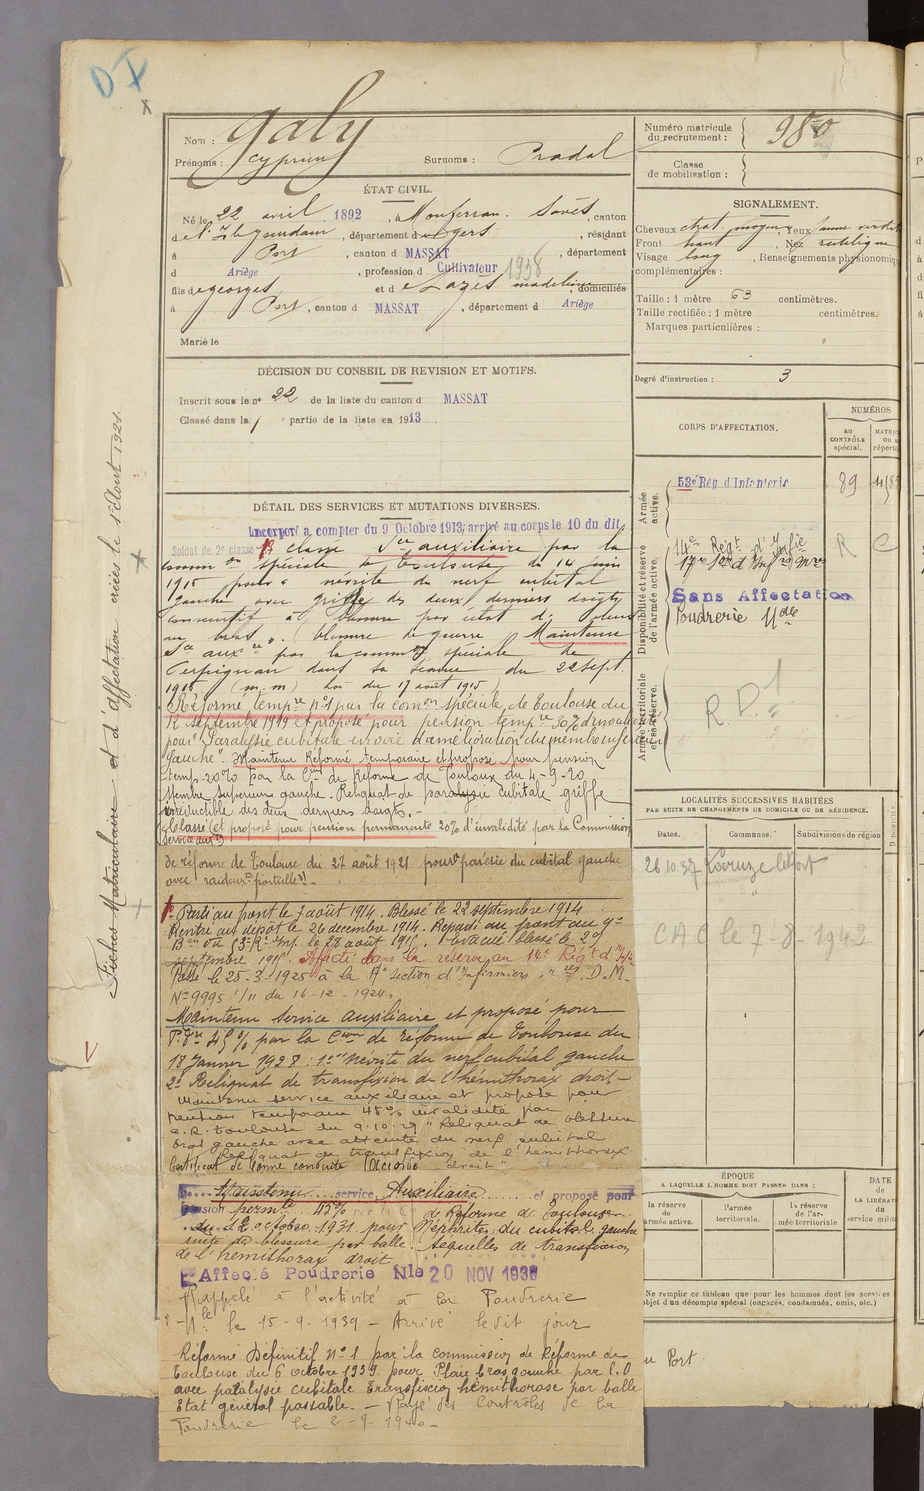 DI
x
Nom : Galy
Prénoms : Cyprien Surnoms : Pradal
Numéro matricule du recrutement : 980
Classe de mobilisation :
ÉTAT CIVIL.
Né le 22 avril 1892, à Monferran Savès, canton
de l'Isle Jourdain, département du Gers, résidant
à Port, canton d MASSAT, département
d Ariège, profession d Cultivateur 1938
fils de georges et de Lazes madeleine, domiciliés
à Port, canton d MASSAT, département d Ariège
Marié le
SIGNALEMENT.
Cheveux chat. moyen Yeux
Front haut, Nez rectiligne
Visage long, Renseignements physionomiq
complémentaires :
Taille : 1 mètre 63 centimètres.
Taille rectifiée : 1 mètre centimètres.
Marques particulières :
Degré d'instruction : 3
DÉCISION DU CONSEIL DE REVISION ET MOTIFS.
Inscrit sous le n° 22 de la liste du canton d MASSAT
Classé dans la 1 partie de la liste en 1913.
CORPS D'AFFECTATION.
NUMÉROS
au CONTRÔLE spécial.
MATRIC
ou a
réperto
Armée active.
53e Rég d'Infanterie 89
Disponibilité et réserve de l'armée active.
14e Régt d'Infie R C
17e Son d'Infrs Mres
Sans Affectation
Poudrerie Nle
Armée territoriale et sa réserve.
R.D.1
DÉTAIL DES SERVICES ET MUTATIONS DIVERSES.
Incorporé a compter du 9 Octobre 1913, arrivé au corps le 10 du dit
Soldat de 2e classe 1° classé Sce auxiliaire par la
common spéciale de Toulouse du 14 juin
1915 pour névrite du nerf cubital
gauche avec griffe des deux derniers doigts
consécutif à blessure par éclat d'obus
au bras. (blessure de guerre) Maintenu
Sce auxre par la common spéciale de
Perpignan dans sa séance du 22 sept.
1915 (m.m) Loi du 17 août 1915)
Réformé tempre n°1 par la comon spéciale de Toulouse du
12 septembre 1919 et proposé pour pension tempre 30% d'invalidité
pour "Paralysie cubitale en voie d'amélioration du membre
gauche". Maintenu Réformé temporaire et proposé pour pension
temp. 20% par la Con de Réforme de Toulouse du 4-9-20
Membre supérieur gauche. Reliquat de paralysie cubitale griffe
irréductible des deux derniers doigts.
Classé (service auxre) et proposé pour pension permanente 20% d'invalidité par la Commission
de réforme de Toulouse du 27 août 1921 pour parésie du cubital gauche
avec raideur partielle.
1° Parti au front le 7 août 1914. Blessé le 22 septembre 1914
Rentré au dépôt le 26 décembre 1914. Reparti au front au 9e
Bon du 53e R. Inf. le 28 août 1915. Evacué blessé le 29
septembre 1915. Affecté dans la réserve au 14e Régt d'Infie
Passé le 25-3-1925 à la 17e section d'Infirmiers. D.M.
N° 9995 1/11 du 16-12-1924.
Maintenu service auxiliaire et proposé pour
45% par la Con de réforme de Toulouse du
18 Janvier 1928 : 1° Névrite du nerf cubital gauche
2° Reliquat de transfixion de l'hémithorax droit -
Maintenu service auxiliaire et proposé pour
pension temporaire 45% invalidité par
C.R. Toulouse du 9.10.29 "Reliquat de blessure
bras gauche avec atteinte du nerf cubital
Reliquat de transfixion de l'hémithorax
droit"
Certificat de bonne conduite "Accordé"
Maintenu service Auxiliaire et proposé pour
pension permte 45% de Réforme de Toulouse
du 12 octobre 1931 pour Névrite du cubital gauche
suite de blessure par balle. Séquelles de transfixion
de l'hémithorax droit
Affecté Poudrerie Nle 20 NOV 1938
Rappelé à l'activité à la Poudrerie
Nle le 15-9-1939 - Arrivé le dit jour
Réformé Définitif N°1 par la commission de Réforme de
Toulouse du 6 octobre 1939 pour Plaie bras gauche par E.O
avec paralysie cubitale Transfixion hémithorax par balle
Etat général passable. - Rayé des Contrôles de la
Poudrerie le 2-9-1940-
LOCALITÉS SUCCESSIVES HABITÉES
PAR SUITE DE CHANGEMENTS DE DOMICILE OU DE RÉSIDENCE.
Dates. Communes. Subdivisions de région
D DOMICILE
26 10 37
CAC le 7-8-1942
ÉPOQUE
A LAQUELLE L'HOMME DOIT PASSER DANS :
la réserve de
armée active.
l'armée territoriale.
la réserve de l'armée territoriale
DATE
de
LA LIBÉRAT
du
service milit
Ne remplir ce tableau que pour les hommes dont les services
objet d'un décompte spécial (engagés, condamnés, omis, etc.)
au Port
Fiches Matriculaire et d'affectation créées le 1er Août 1921.